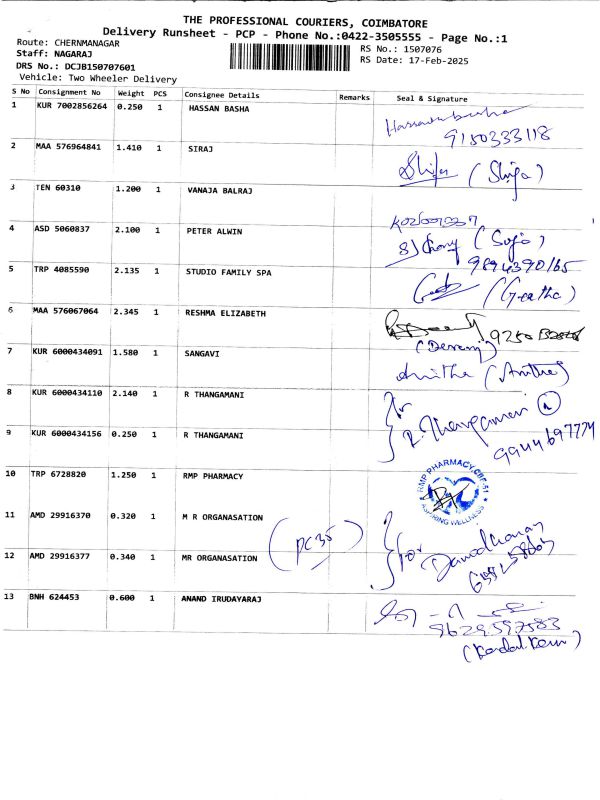 THE PROFESSIONAL COURIERS, COIMBATORE
Delivery Runsheet - PCP - Phone No.:0422-3505555 - Page No.:1
Route: CHERNMANAGAR
Staff: NAGARAJ
DRS No.: DCJB150707601
Vehicle: Two Wheeler Delivery
RS No.: 1507076
RS Date: 17-Feb-2025
S No Consignment No Weight PCS Consignee Details Remarks Seal & Signature
1 KUR 7002856264 0.250 1 HASSAN BASHA
9150333118
2 MAA 576964841 1.410 1 SIRAJ
3 TEN 60310 1.200 1 VANAJA BALRAJ
4 ASD 5060837 2.100 1 PETER ALWIN
(Suja)
9894390165
5 TRP 4085590 2.135 1 STUDIO FAMILY SPA
(Geetha)
6 MAA 576067064 2.345 1 RESHMA ELIZABETH
7 KUR 6000434091 1.580 1 SANGAVI
Anitha (Anitha)
8 KUR 6000434110 2.140 1 R THANGAMANI
for
R. Thangamani
9944697774
9 KUR 6000434156 0.250 1 R THANGAMANI
10 TRP 6728820 1.250 1 RMP PHARMACY
RMP PHARMACY, CBE-51
ASPIRING WELLNESS
11 AMD 29916370 0.320 1 M R ORGANASATION
(PC35)
for
12 AMD 29916377 0.340 1 MR ORGANASATION
13 BNH 624453 0.600 1 ANAND IRUDAYARAJ
9629597583